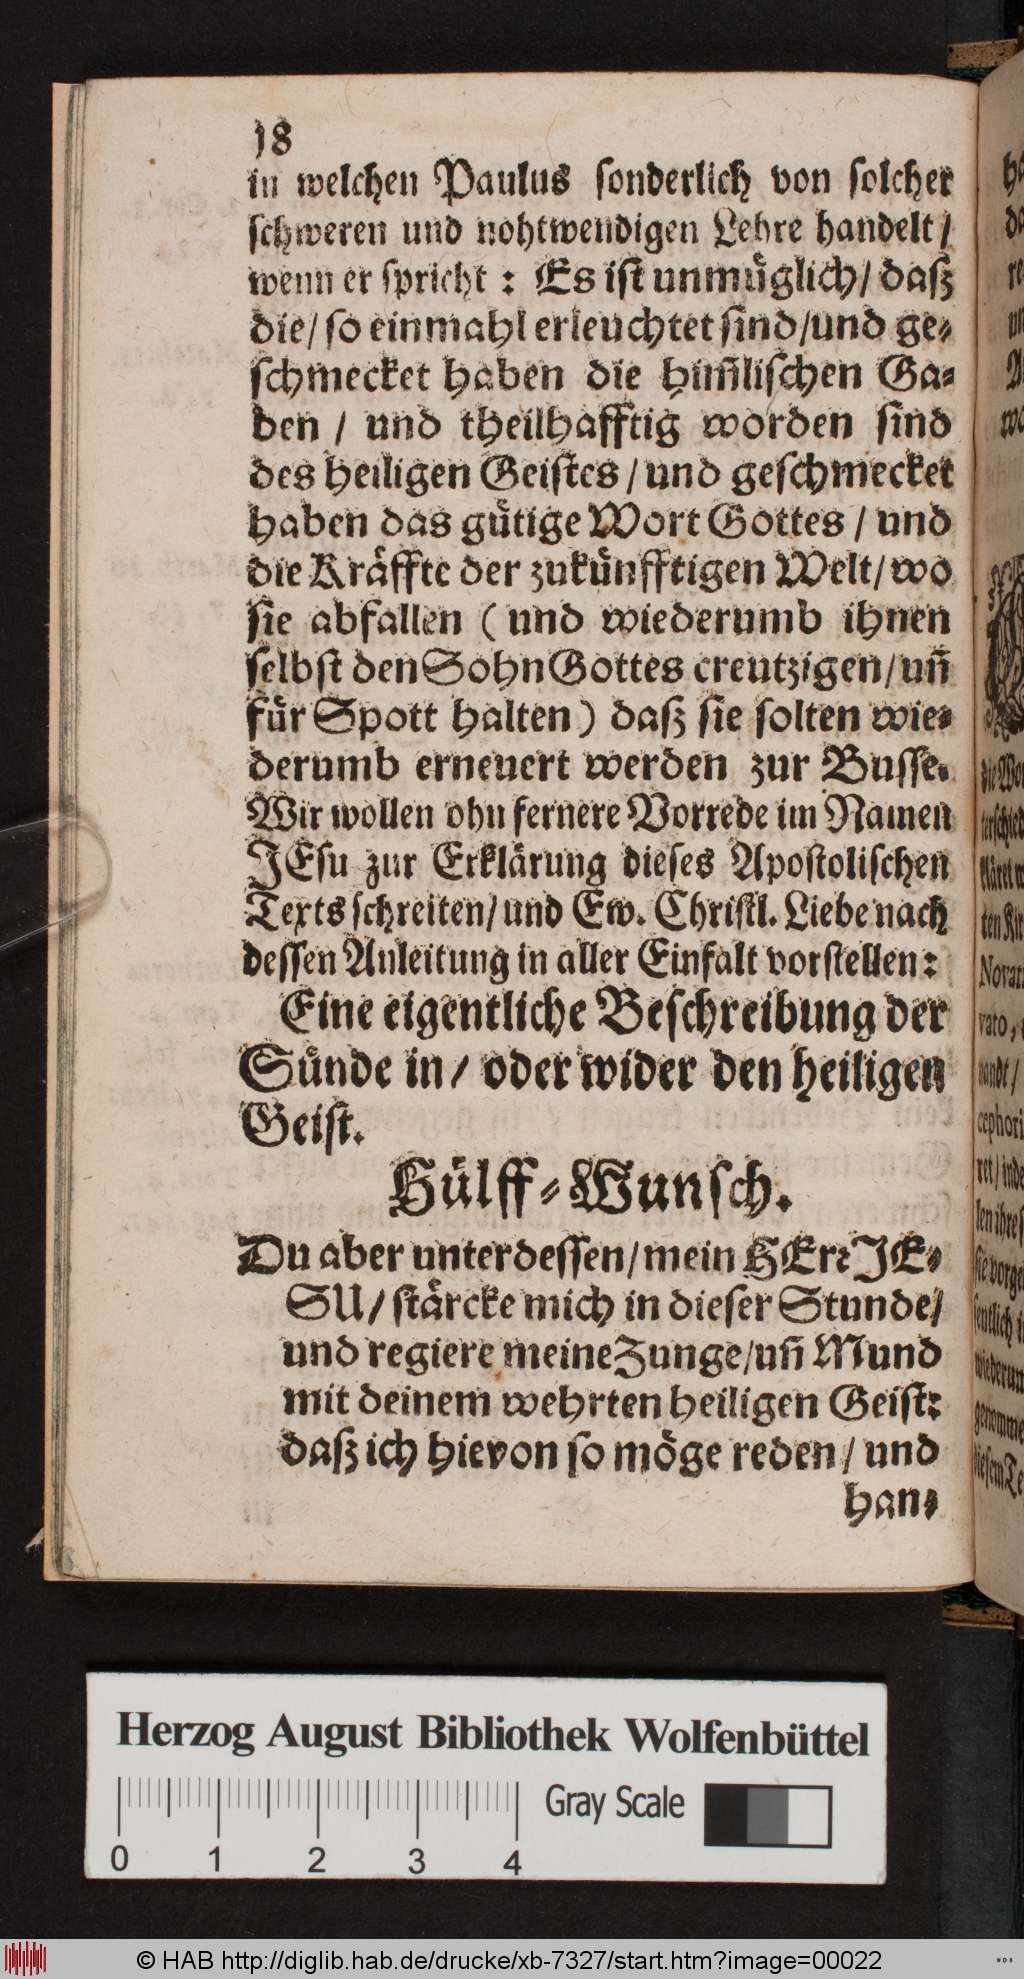 18
in welchen Paulus sonderlich von solcher
schweren und nohtwendigen Lehre handelt /
wenn er spricht : Es ist unmüglich / daß
die / so einmahl erleuchtet sind / und ge-
schmecket haben die him̃lischen Ga-
ben / und theilhafftig worden sind
des heiligen Geistes / und geschmecket
haben das gütige Wort Gottes / und
die Kräffte der zukünfftigen Welt / wo
sie abfallen ( und wiederumb ihnen
selbst den Sohn Gottes creutzigen / uñ
für Spott halten ) daß sie solten wie-
derumb erneuert werden zur Busse.
Wir wollen ohn fernere Vorrede im Namen
JEsu zur Erklärung dieses Apostolischen
Texts schreiten / und Ew. Christl. Liebe nach
dessen Anleitung in aller Einfalt vorstellen:
Eine eigentliche Beschreibung der
Sünde in / oder wider den heiligen
Geist.
Hülff-Wunsch.
Du aber unterdessen / mein HErr JE-
SU / stärcke mich in dieser Stunde /
und regiere meine Zunge / uñ Mund
mit deinem wehrten heiligen Geist:
daß ich hievon so möge reden / und
han-
Herzog August Bibliothek Wolfenbüttel
Gray Scale
0 1 2 3 4
© HAB http://diglib.hab.de/drucke/xb-7327/start.htm?image=00022